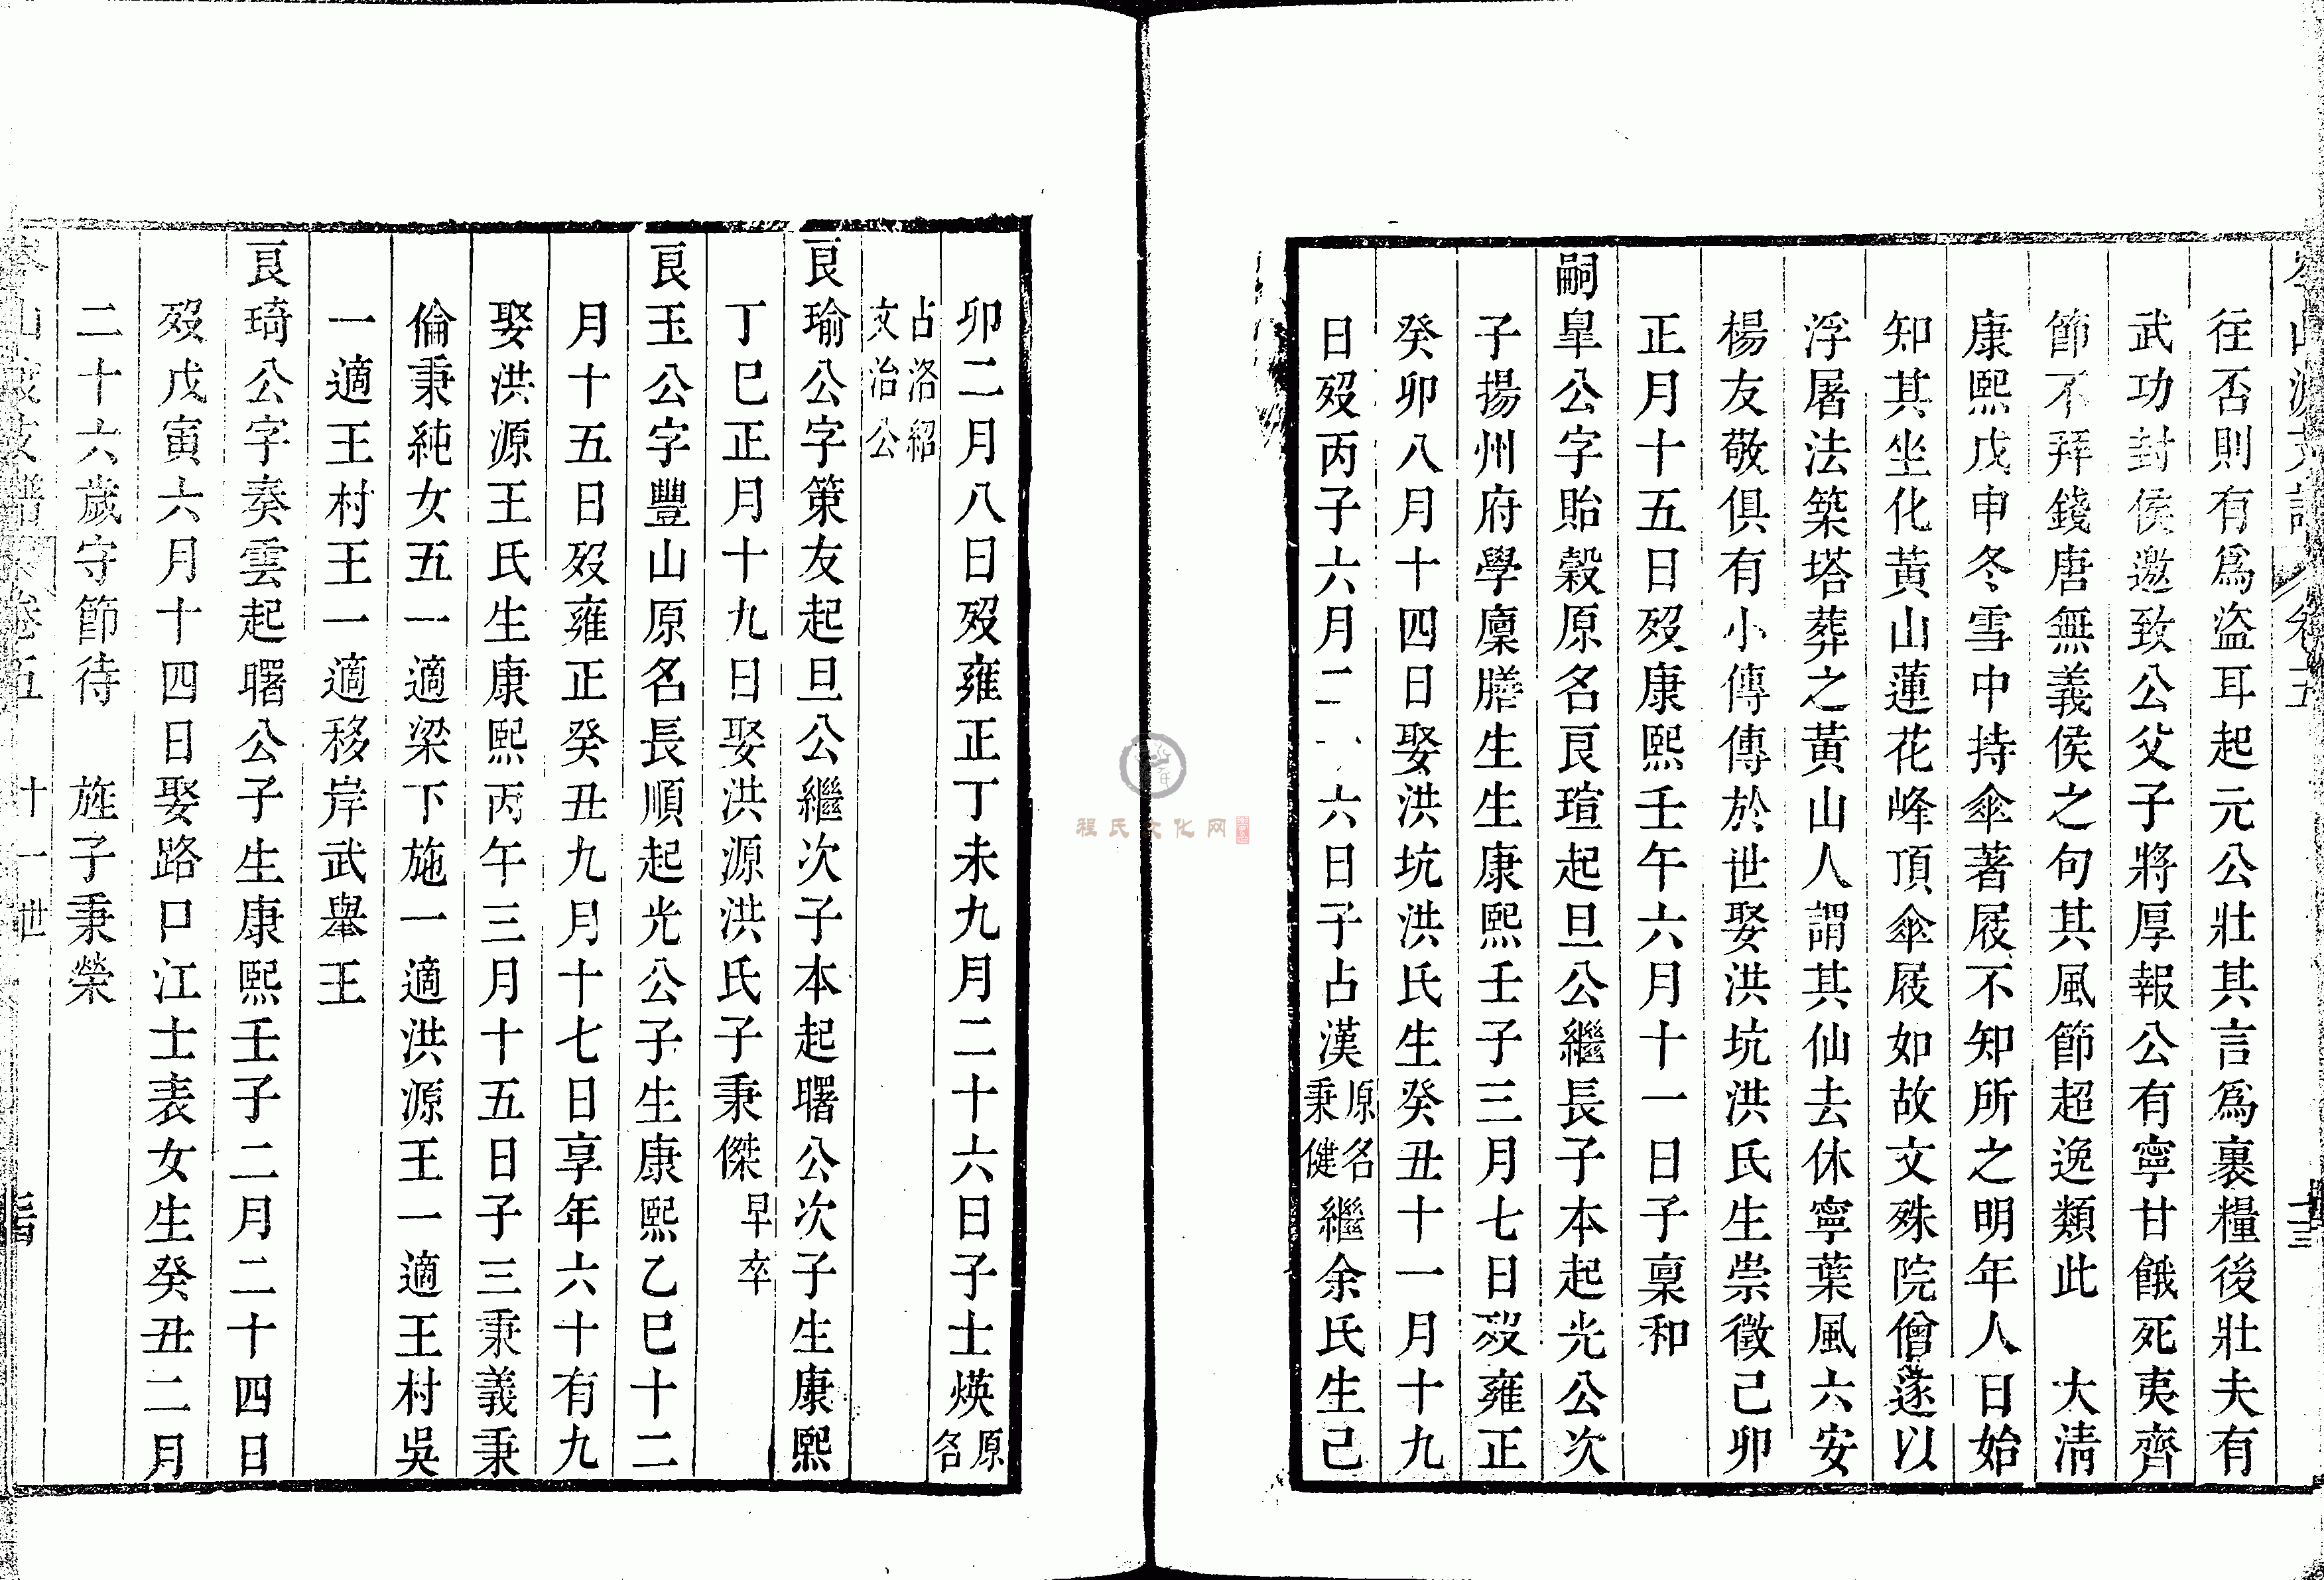 往否則有爲盜耳起元公壯其言爲裹糧後壯夫有
武功封侯邀致公父子將厚報公有寧甘餓死夷齊
節不拜錢唐無義侯之句其風節超逸類此 大清
康熙戊申冬雪中持傘著屐不知所之明年人日始
知其坐化黃山蓮花峰頂傘屐如故文殊院僧遂以
浮屠法築塔葬之黃山人謂其仙去休寧葉風六安
楊友敬俱有小傳傳於世娶洪坑洪氏生崇徵己卯
正月十五日歿康熙壬午六月十一日子稟和
嗣皐公字貽穀原名良瑄起旦公繼長子本起光公次
子揚州府學廩膳生生康熙壬子三月七日歿雍正
癸卯八月十四日娶洪坑洪氏生癸丑十一月十九
日歿丙子六月二 六日子占漢原名秉健繼余氏生己
卯二月八日歿雍正丁未九月二十六日子士煐原名
占洛紹文治公
良瑜公字策友起旦公繼次子本起曙公次子生康熙
丁巳正月十九日娶洪源洪氏子秉傑早卒
良玉公字豐山原名長順起光公子生康熙乙巳十二
月十五日歿雍正癸丑九月十七日享年六十有九
娶洪源王氏生康熙丙午三月十五日子三秉義秉
倫秉純女五一適梁下施一適洪源王一適王村吳
一適王村王一適移岸武舉王
良琦公字奏雲起曙公子生康熙壬子二月二十四日
歿戊寅六月十四日娶路口江士表女生癸丑二月
二十六歲守節待 旌子秉榮
卷五 十一世
程氏文化网